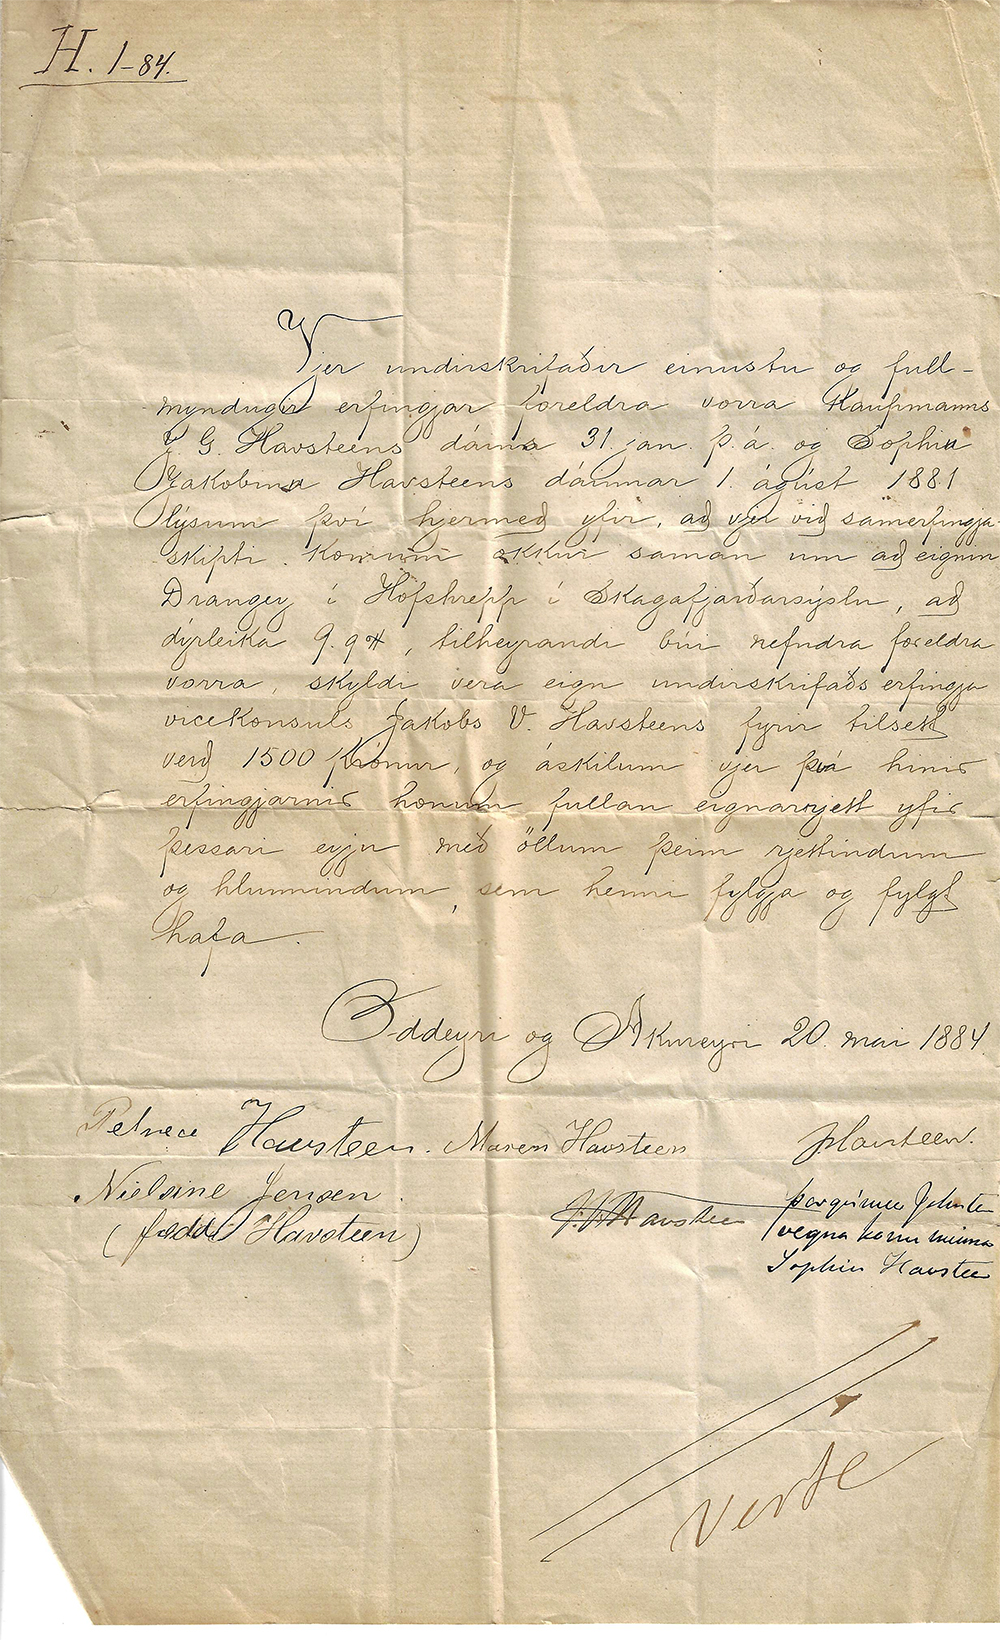 H. 1-84.
Vjer undirskrifaðir einustu og full-
myndugir erfingjar foreldra vorra Kaupmanns
J. G. Havsteens dáins 31. jan. þ.á. og Sophiu
Jakobinu Havsteens dáinnar 1. ágúst 1881
lýsum því hjermeð yfir, að vjer við samerfingja-
skipti komum okkur saman um að eignin
Drangey í Hofshrepp í Skagafjarðarsýslu, að
dýrleika 9.9 , tilheyrandi búi nefndra foreldra
vorra, skyldi vera eign undirskrifaðs erfingja
vicekonsuls Jakobs V. Havsteens fyrir tilsett
verð 1500 Krónur, og áskilum vjer þvá hinir
erfingjarnir honum fullan eignarrjett yfir
þessari eyju með öllum þeim rjettindum
og hlunnindum, sem henni fylgja og fylgt
hafa.
Oddeyri og Akureyri 20. mai 1884.
Petrea Havsteen. Maren Havsteen JHavsteen.
Nielsine Jensen. J.V.Havsteen Þorgrímur Johnsen
(fædd Havsteen) vegna konu minnar
Sophiu Havsteen
Verte